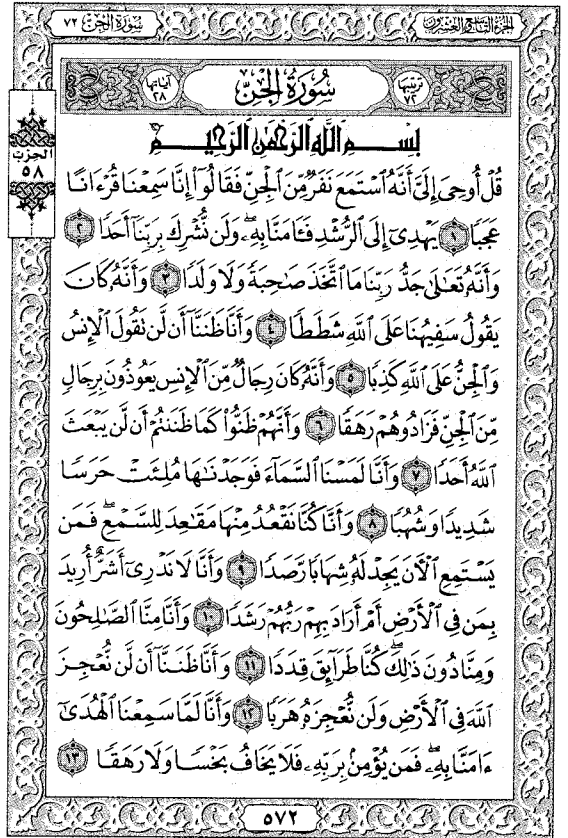 الجزء التاسع والعشرون
سورة الجن ٧٢
ترتيبها ٧٢
سُورَةُ الْجِنِّ
آياتها ٢٨
الحزب ٥٨
بِسْمِ اللَّهِ الرَّحْمَٰنِ الرَّحِيمِ
قُلْ أُوحِيَ إِلَيَّ أَنَّهُ ٱسْتَمَعَ نَفَرٌ مِّنَ ٱلْجِنِّ فَقَالُوٓا۟ إِنَّا سَمِعْنَا قُرْءَانًا
عَجَبًا ١ يَهْدِىٓ إِلَى ٱلرُّشْدِ فَـَٔامَنَّا بِهِۦ ۖ وَلَن نُّشْرِكَ بِرَبِّنَآ أَحَدًا ٢
وَأَنَّهُۥ تَعَٰلَىٰ جَدُّ رَبِّنَا مَا ٱتَّخَذَ صَٰحِبَةً وَلَا وَلَدًا ٣ وَأَنَّهُۥ كَانَ
يَقُولُ سَفِيهُنَا عَلَى ٱللَّهِ شَطَطًا ٤ وَأَنَّا ظَنَنَّآ أَن لَّن نَقُولَ ٱلْإِنسُ
وَٱلْجِنُّ عَلَى ٱللَّهِ كَذِبًا ٥ وَأَنَّهُۥ كَانَ رِجَالٌ مِّنَ ٱلْإِنسِ يَعُوذُونَ بِرِجَالٍ
مِّنَ ٱلْجِنِّ فَزَادُوهُمْ رَهَقًا ٦ وَأَنَّهُمْ ظَنُّوا۟ كَمَا ظَنَنتُمْ أَن لَّن يَبْعَثَ
ٱللَّهُ أَحَدًا ٧ وَأَنَّا لَمَسْنَا ٱلسَّمَآءَ فَوَجَدْنَٰهَا مُلِئَتْ حَرَسًا
شَدِيدًا وَشُهُبًا ٨ وَأَنَّا كُنَّا نَقْعُدُ مِنْهَا مَقَٰعِدَ لِلسَّمْعِ ۖ فَمَن
يَسْتَمِعِ ٱلْـَٔانَ يَجِدْ لَهُۥ شِهَابًا رَّصَدًا ٩ وَأَنَّا لَا نَدْرِىٓ أَشَرٌّ أُرِيدَ
بِمَن فِى ٱلْأَرْضِ أَمْ أَرَادَ بِهِمْ رَبُّهُمْ رَشَدًا ١٠ وَأَنَّا مِنَّا ٱلصَّٰلِحُونَ
وَمِنَّا دُونَ ذَٰلِكَ ۖ كُنَّا طَرَآئِقَ قِدَدًا ١١ وَأَنَّا ظَنَنَّآ أَن لَّن نُّعْجِزَ
ٱللَّهَ فِى ٱلْأَرْضِ وَلَن نُّعْجِزَهُۥ هَرَبًا ١٢ وَأَنَّا لَمَّا سَمِعْنَا ٱلْهُدَىٰٓ
ءَامَنَّا بِهِۦ ۖ فَمَن يُؤْمِنۢ بِرَبِّهِۦ فَلَا يَخَافُ بَخْسًا وَلَا رَهَقًا ١٣
٥٧٢